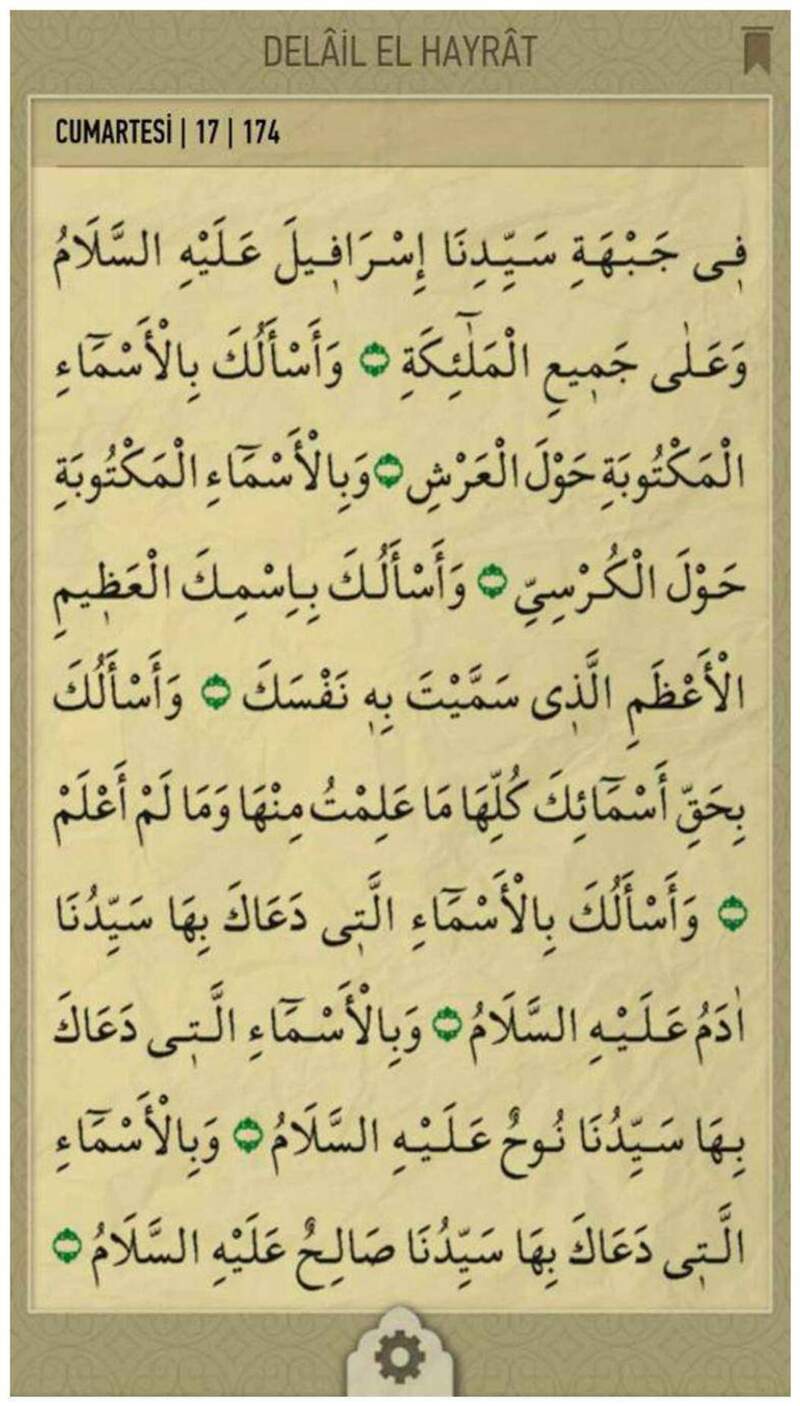 DELÂİL EL HAYRÂT
CUMARTESİ | 17 | 174
فِى جَبْهَةِ سَيِّدِنَا إِسْرَافِيلَ عَلَيْهِ السَّلَامُ
وَعَلٰى جَمِيعِ الْمَلٰٓئِكَةِ ۝ وَأَسْأَلُكَ بِالْأَسْمَٓاءِ
الْمَكْتُوبَةِ حَوْلَ الْعَرْشِ ۝ وَبِالْأَسْمَٓاءِ الْمَكْتُوبَةِ
حَوْلَ الْكُرْسِيِّ ۝ وَأَسْأَلُكَ بِاِسْمِكَ الْعَظِيمِ
الْأَعْظَمِ الَّذِى سَمَّيْتَ بِهٖ نَفْسَكَ ۝ وَأَسْأَلُكَ
بِحَقِّ أَسْمَٓائِكَ كُلِّهَا مَا عَلِمْتُ مِنْهَا وَمَا لَمْ أَعْلَمْ
۝ وَأَسْأَلُكَ بِالْأَسْمَٓاءِ الَّتِى دَعَاكَ بِهَا سَيِّدُنَا
اٰدَمُ عَلَيْهِ السَّلَامُ ۝ وَبِالْأَسْمَٓاءِ الَّتِى دَعَاكَ
بِهَا سَيِّدُنَا نُوحٌ عَلَيْهِ السَّلَامُ ۝ وَبِالْأَسْمَٓاءِ
الَّتِى دَعَاكَ بِهَا سَيِّدُنَا صَالِحٌ عَلَيْهِ السَّلَامُ ۝